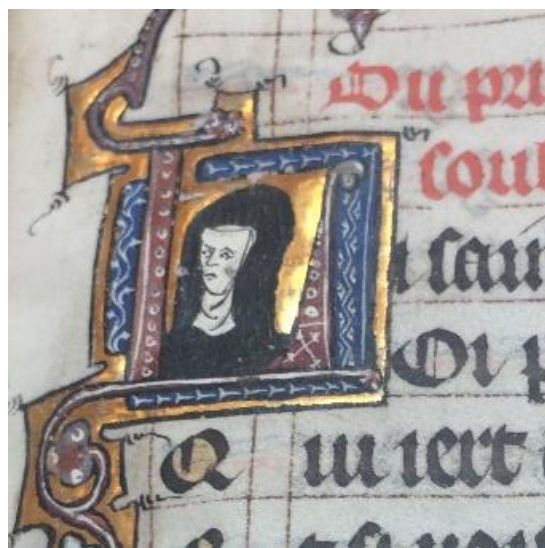 Du pri
soul
a sain
Oi p
Qui iert